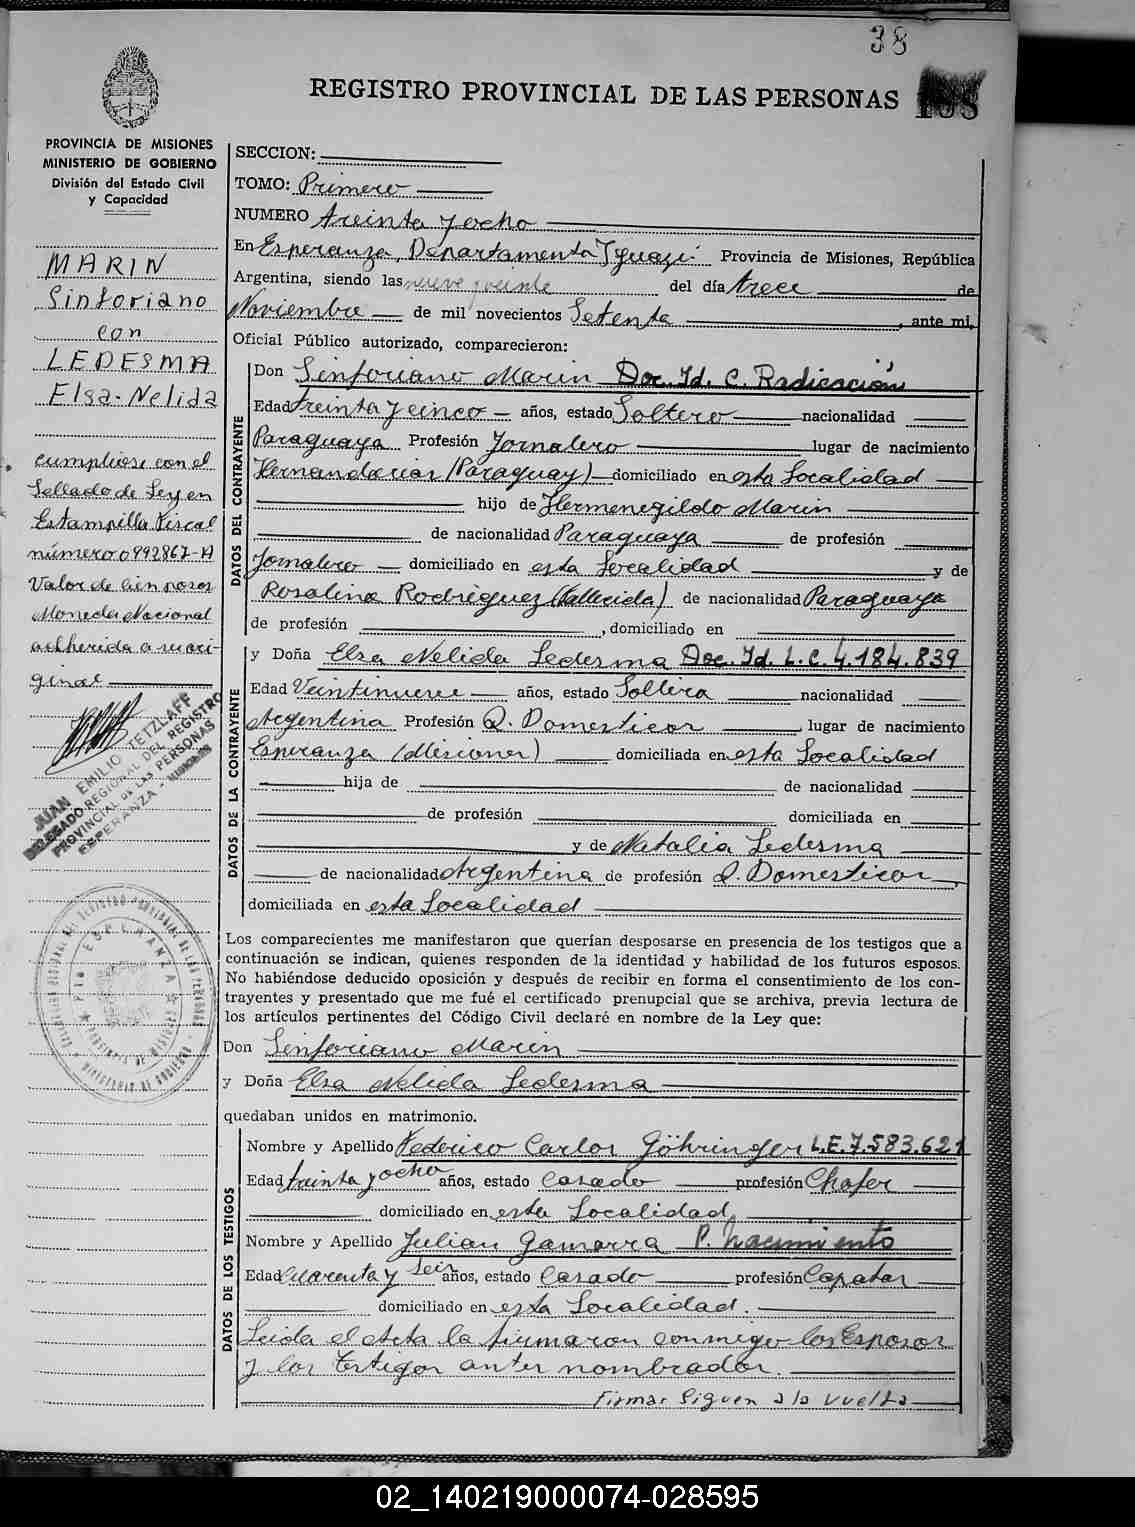 38
REGISTRO PROVINCIAL DE LAS PERSONAS
108
PROVINCIA DE MISIONES
MINISTERIO DE GOBIERNO
División del Estado Civil
y Capacidad
MARIN
Sinforiano
con
LEDESMA
Elsa-Nelida
cumpliose con el
Sellado de Ley en
Estampilla Fiscal
número 0992867-A
Valor de cien pesos
Moneda Nacional
adherida a mari-
ginal
JUAN EMILIO TETZLAFF
DELEGADO REGIONAL DEL REGISTRO
PROVINCIAL DE LAS PERSONAS
ESPERANZA - MISIONES
ESPERANZA
SECCION:
TOMO: Primero
NUMERO treinta y ocho
En Esperanza, Departamento Iguazú Provincia de Misiones, República
Argentina, siendo las nueve y veinte del día trece de
Noviembre de mil novecientos Setenta, ante mi,
Oficial Público autorizado, comparecieron:
DATOS DEL CONTRAYENTE
Don Sinforiano Marin Doc. Id. C. Radicación
Edad treinta y cinco años, estado Soltero nacionalidad
Paraguaya Profesión Jornalero lugar de nacimiento
Hernandarias (Paraguay) domiciliado en esta Localidad
hijo de Hermenegildo Marin
de nacionalidad Paraguaya de profesión
Jornalero domiciliado en esta Localidad y de
Rosalina Rodriguez (fallecida) de nacionalidad Paraguaya
de profesión , domiciliado en
DATOS DE LA CONTRAYENTE
y Doña Elsa Nelida Ledesma Doc. Id. L. C. 4.184.839
Edad Veintinueve años, estado Soltera nacionalidad
Argentina Profesión Q. Domesticos, lugar de nacimiento
Esperanza (Misiones) domiciliada en esta Localidad
hija de de nacionalidad
de profesión domiciliada en
y de Natalia Ledesma
de nacionalidad Argentina de profesión Q. Domesticos,
domiciliada en esta Localidad
Los comparecientes me manifestaron que querían desposarse en presencia de los testigos que a
continuación se indican, quienes responden de la identidad y habilidad de los futuros esposos.
No habiéndose deducido oposición y después de recibir en forma el consentimiento de los con-
trayentes y presentado que me fué el certificado prenupcial que se archiva, previa lectura de
los artículos pertinentes del Código Civil declaré en nombre de la Ley que:
Don Sinforiano Marin
y Doña Elsa Nelida Ledesma
quedaban unidos en matrimonio.
DATOS DE LOS TESTIGOS
Nombre y Apellido Federico Carlos Göhringer L.E.7.583.621
Edad treinta y ocho años, estado Casado profesión Chofer
domiciliado en esta Localidad
Nombre y Apellido Julian Gamarra P. Nacimiento
Edad Cuarenta y Seis años, estado Casado profesión Capataz
domiciliado en esta Localidad.
Leida el Acta la firmaron conmigo los Esposos
y los testigos antes nombrados.
Firmas Siguen a la vuelta
02_140219000074-028595